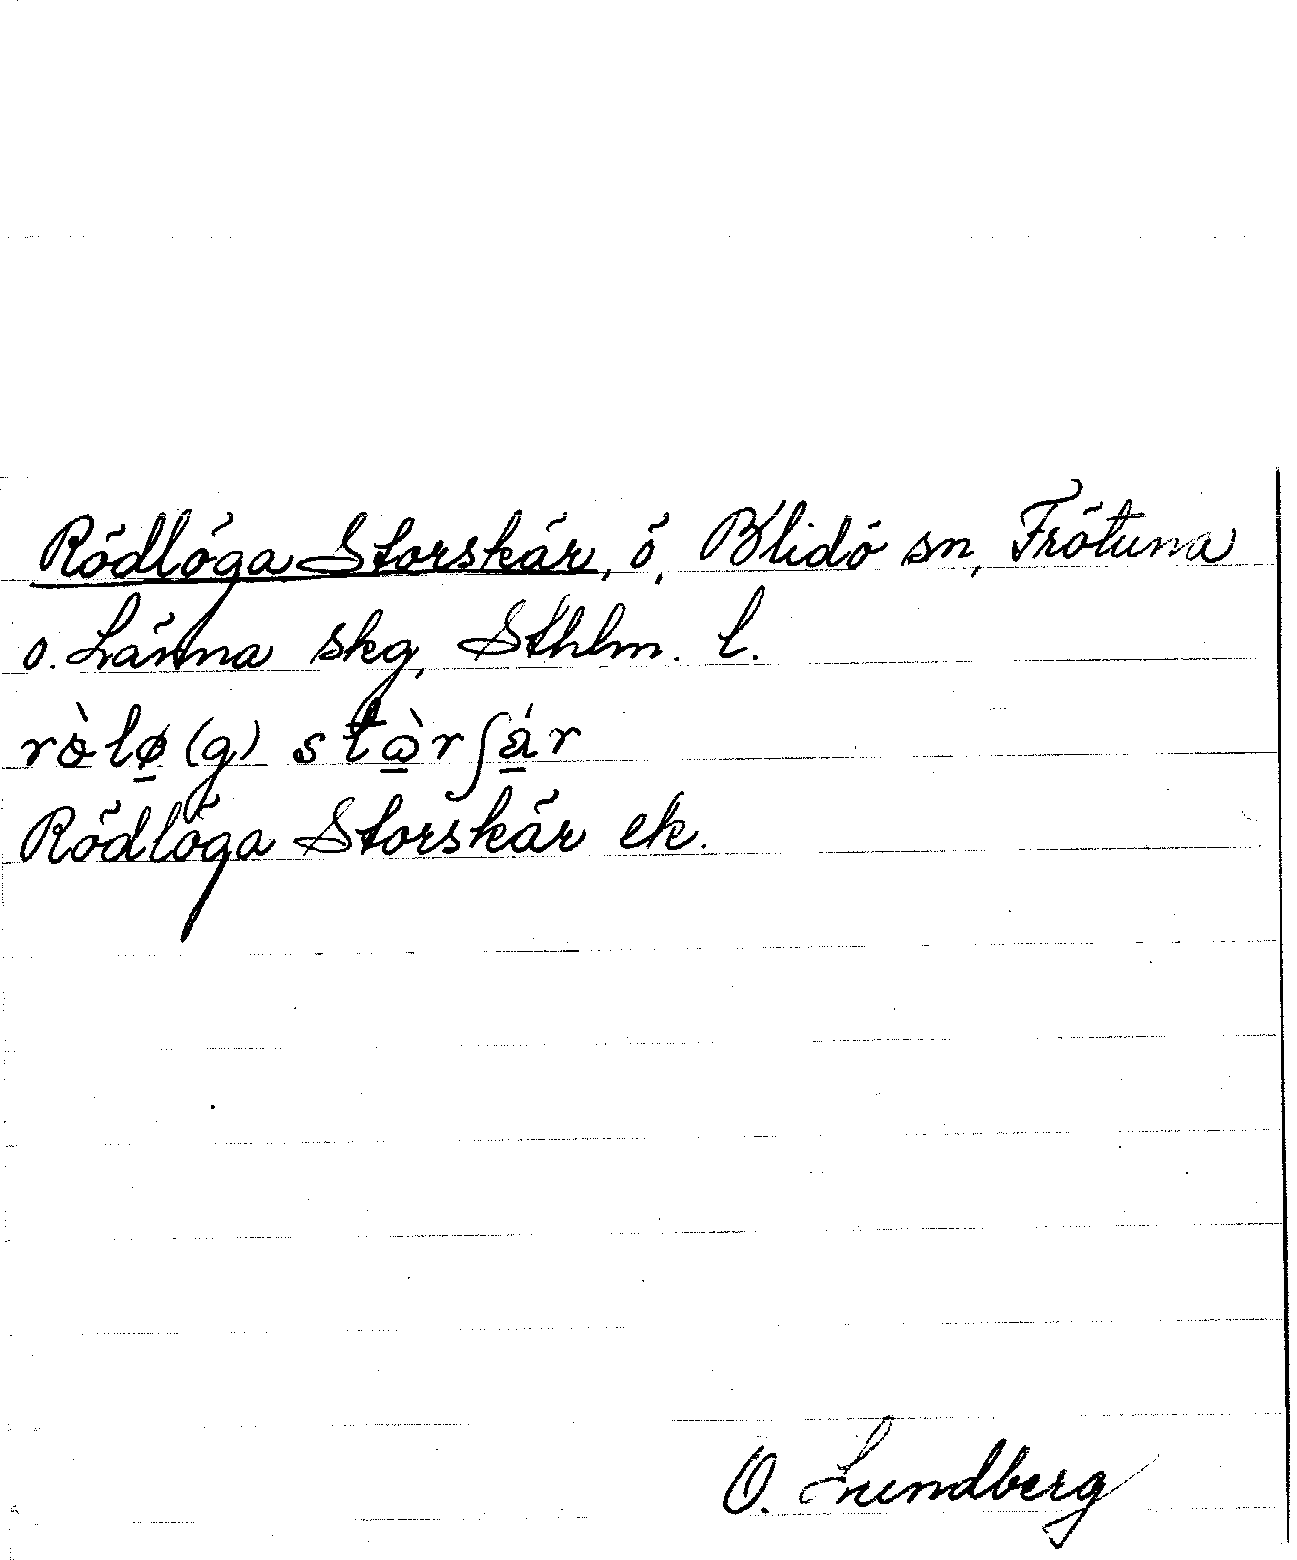 Rödlöga Storskär, ö, Blidö sn, Frötuna
o. Länna skg, Sthlm. l.
rö̀lø̱(g) stὼ̱rʃä̱́r
Rödlöga Storskär ek.
O. Lundberg